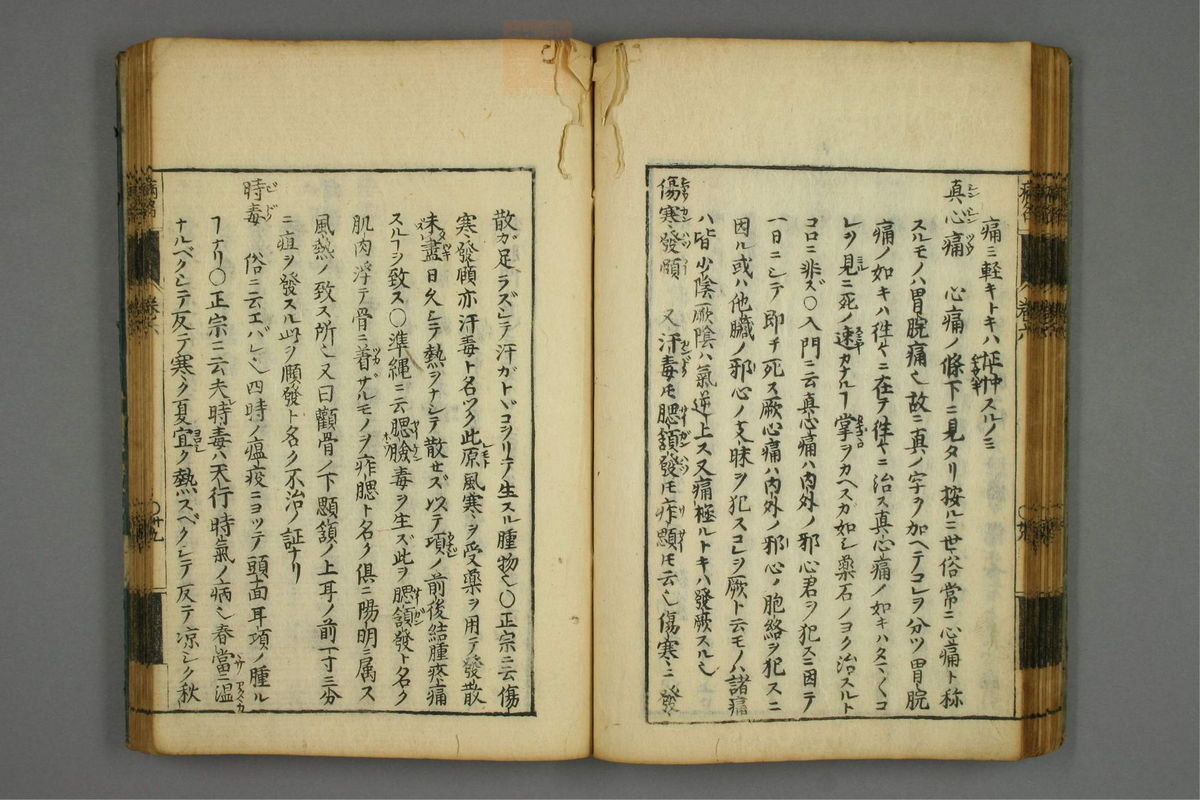 痛ニ軽キトキハ怔忡スルノミ
真心痛 心痛ノ條下ニ見タリ按ルニ世俗常ニ心痛ト称
スルモノハ胃脘痛也故ニ真ノ字ヲ加ヘテコレヲ分ツ胃脘
痛ノ如キハ徃々ニ在テ徃々ニ治ス真心痛ノ如キハタマ〱コ
レヲ見ニ死ノ速カナルヿ掌ヲカヘスガ如シ藥石ノヨク治スルト
コロニ非ズ〇入門ニ云真心痛ハ内外ノ邪心君ヲ犯スニ因テ
一日ニシテ即チ死ス厥心痛ハ内外ノ邪心ノ胞絡ヲ犯スニ
因ル或ハ他臟ノ邪心ノ支昧ヲ犯スコレヲ厥ト云モノハ諸痛
ハ皆少陰厥陰ハ氣逆上ス又痛極ルトキハ發厥スル也
傷寒發頤 又汗毒トモ腮頷發トモ痄顋トモ云也傷寒ニ發
散ガ足ラズシテ汗ガトヾコヲリテ生スル腫物也〇正宗ニ云傷
寒發頤亦汗毒ト名ツク此原風寒ヲ受藥ヲ用テ發散
未盡日久シテ熱ヲナシテ散セズ以テ項ノ前後結腫疼痛
スルヿヲ致ス〇準縄ニ云腮臉毒ヲ生ズ此ヲ腮頷發ト名ク
肌肉浮テ骨ニ着ザルモノヲ痄腮ト名ク倶ニ陽明ニ属ス
風熱ノ致ス所也又曰顴骨ノ下顋頷ノ上耳ノ前一寸三分
ニ疽ヲ發スル此ヲ頤發ト名ク不治ノ証ナリ
時毒 俗ニ云エバレ也四時ノ瘟疫ニヨッテ頭面耳項ノ腫ル
ヿナリ〇正宗ニ云夫時毒ハ天行時氣ノ病也春當ニ温
ナルベクシテ反テ寒ク夏宜ク熱スベクシテ反テ凉シク秋